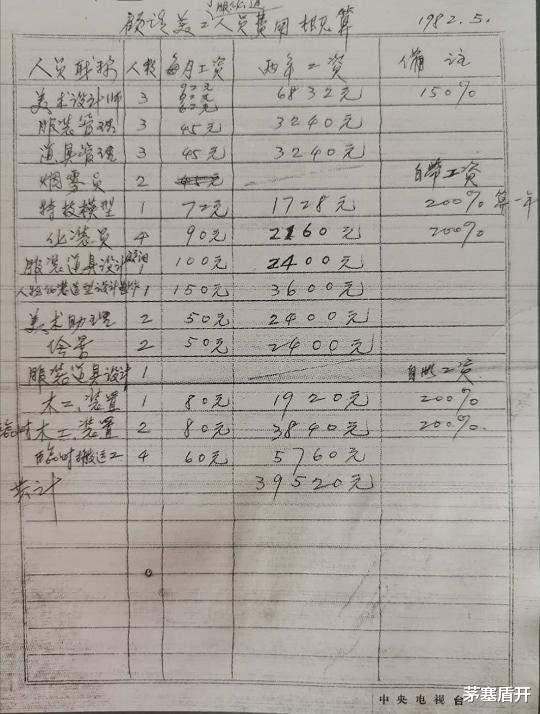 服化道
预设美工人员费用概算 1982.5.
人员职称 人数 每月工资 两年工资 备注
美术设计师 3 92元 62元 6832元 150%
服装管理 3 45元 3240元
道具管理 3 45元 3240元
烟雾员 2 45元 自带工资
特技模型 1 72元 1728元 200% 算一年
化装员 4 90元 2160元 200%
服装道具设计 1 100元 2400元
人物化装造型设计 1 150元 3600元
美术助理 2 50元 2400元
绘景 2 50元 2400元
服装道具设计 1 自带工资
木工、装置 1 80元 1920元 200%
临时木工、装置 2 80元 3840元 200%
临时搬运工 4 60元 5760元
共计 39520元
中央电视台
茅塞盾开